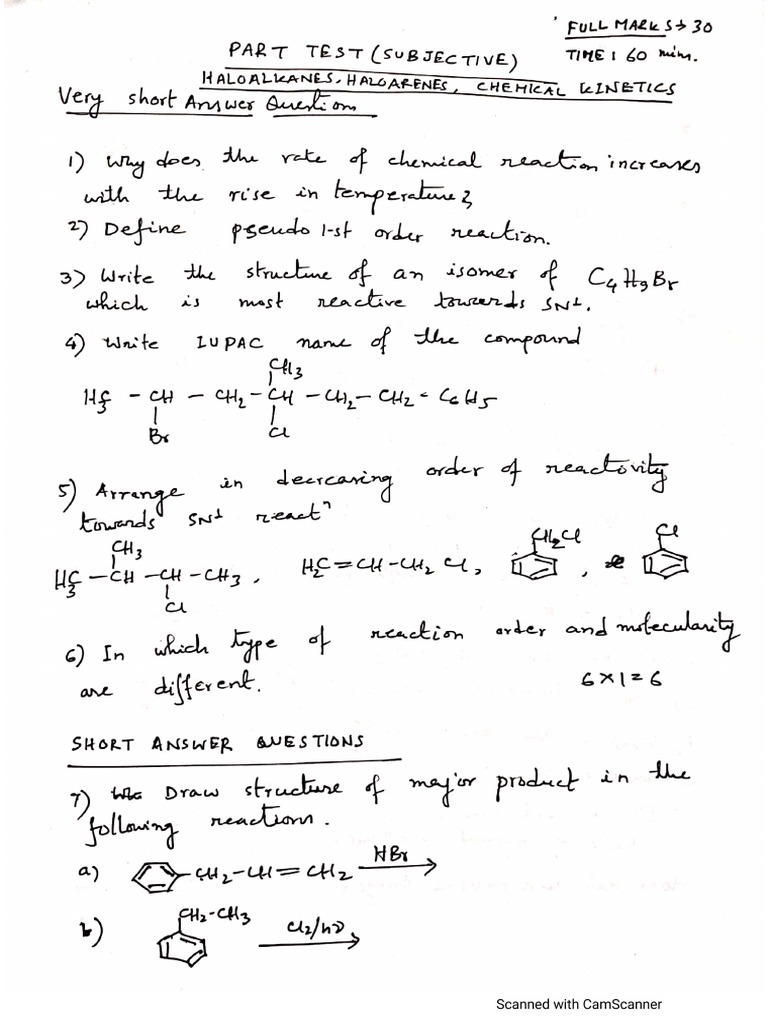 FULL MARKS → 30
PART TEST (SUBJECTIVE) TIME : 60 mins.
HALOALKANES, HALOARENES, CHEMICAL KINETICS
Very short Answer Questions
1) Why does the rate of chemical reaction increases
with the rise in temperature?
2) Define pseudo 1-st order reaction.
3) Write the structure of an isomer of C4H9Br
which is most reactive towards SN1.
4) Write IUPAC name of the compound
CH3
H3C - CH - CH2 - CH - CH2 - CH2 - C6H5
Br Cl
5) Arrange in decreasing order of reactivity
towards SN1 reactn
CH3 CH2Cl Cl
H3C - CH - CH - CH3, H2C = CH - CH2 Cl, ,
Cl
6) In which type of reaction order and molecularity
are different. 6 × 1 = 6
SHORT ANSWER QUESTIONS
7) Draw structure of major product in the
following reactions.
a) CH2 - CH = CH2 HBr
b) CH2 - CH3 Cl2/hν
Scanned with CamScanner